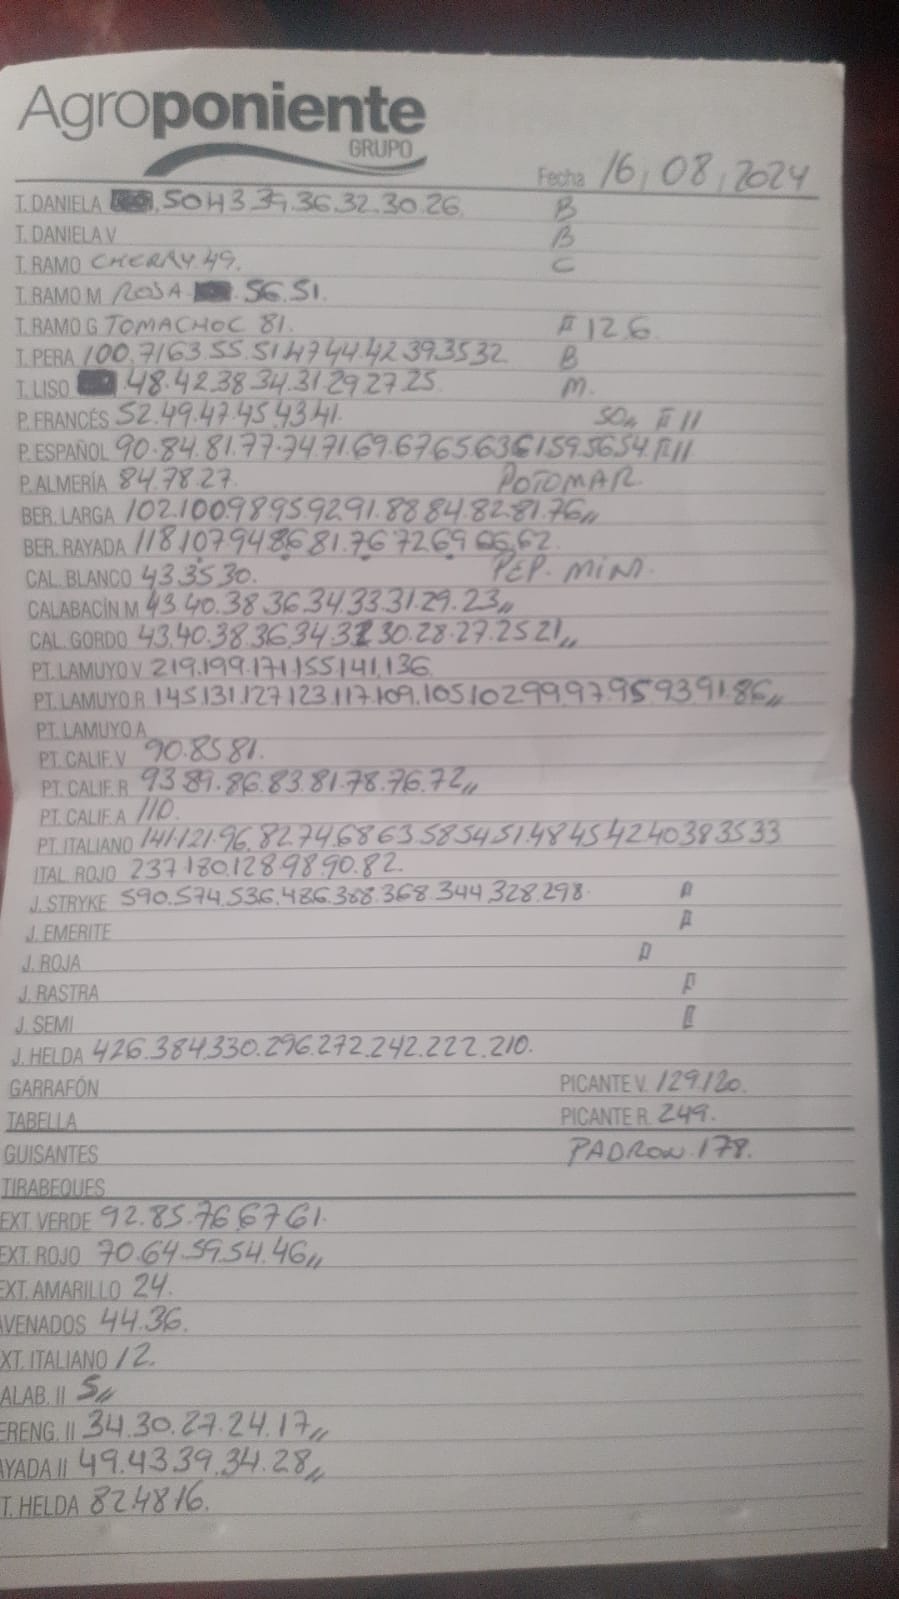 Agroponiente
GRUPO
Fecha 16, 08, 2024
T. DANELA 50.43.39.36.32.30.26. B
T. DANIELA V B
T. RAMO CHERRY.49. C
T. RAMO M ROJA. .56.51.
T. RAMO G TOMACHOC 81. II 12.6
T. PERA 100.71.63.55.51.47.44.42.39.35.32 B
T. LISO 48.42.38.34.31.29.27.25 M.
P. FRANCÉS 52.49.47.45.43.41. 50,, II 11
P. ESPAÑOL 90.84.81.77.74.71.69.67.65.63.61.59.56.54. II 11
P. ALMERÍA 84.78.27. POTOMAR.
BER. LARGA 102.100.98.95.92.91.88.84.82.81.76,,
BER. RAYADA 118.107.94.86.81.76.72.69.66.62.
CAL. BLANCO 43.35.30. PEP. MINI.
CALABACÍN M 43.40.38.36.34.33.31.29.23,,
CAL. GORDO 43.40.38.36.34.32.30.28.27.25.21,,
PT. LAMUYO V 219.199.171.155.141.136
PT. LAMUYO R 145.131.127.123.117.109.105.102.99.97.95.93.91.86,,
PT. LAMUYO A
PT. CALIF. V 90.85.81.
PT. CALIF. R 93.89.86.83.81.78.76.72,,
PT. CALIF. A 110.
PT. ITALIANO 141.121.96.82.74.68.63.58.54.51.48.45.42.40.38.35.33
ITAL. ROJO 237.180.128.98.90.82.
J. STRYKE 590.574.536.486.388.368.344.328.298.
J. EMERITE
J. ROJA
J. RASTRA
J. SEMI
J. HELDA 426.384.330.296.272.242.222.210.
GARRAFÓN PICANTE V. 129.120.
TABELLA PICANTE R. 249.
GUISANTES PADRON.178.
TIRABEQUES
EXT. VERDE 92.85.76.67.61.
EXT. ROJO 70.64.59.54.46,,
EXT. AMARILLO 24.
AVENADOS 44.36.
XT. ITALIANO 12.
ALAB. II 5,,
ERENG. II 34.30.27.24.17,,
AYADA II 49.43.39.34.28,,
T. HELDA 82.48.16.